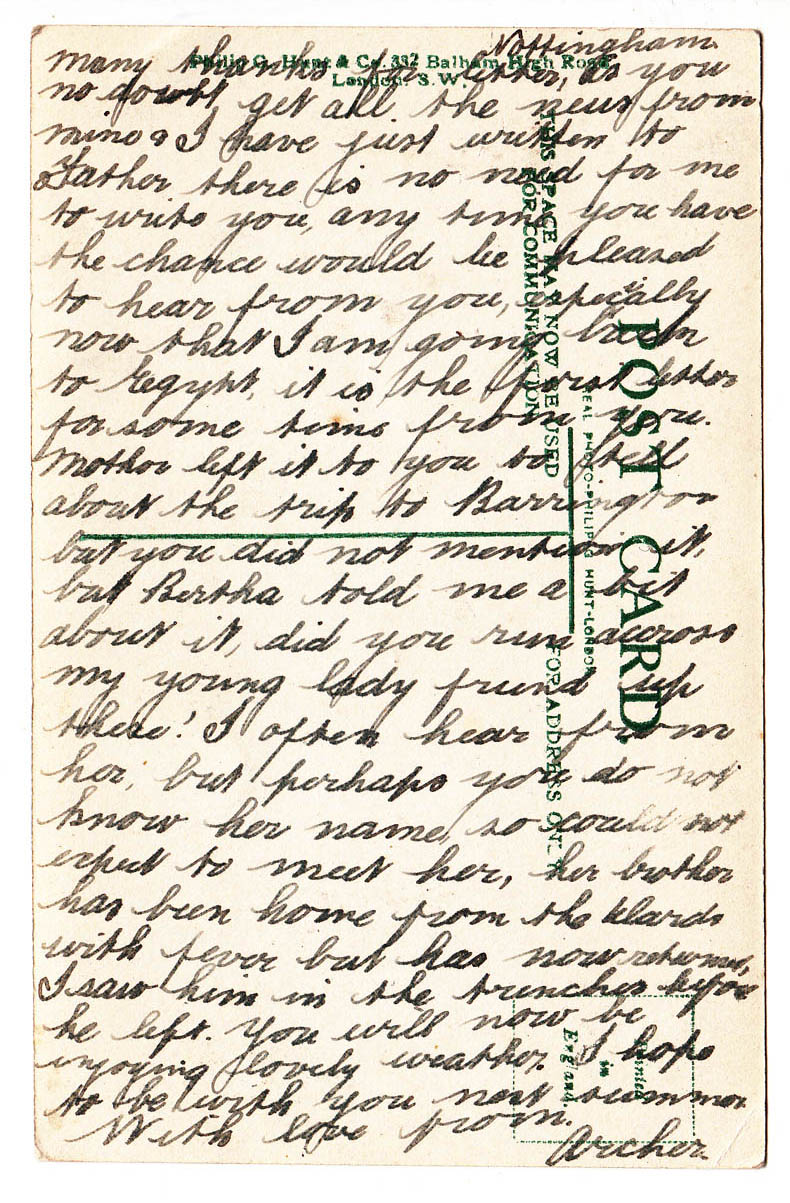 Nottingham
Philip G. Hunt & Co. 332 Balham High Road
London. S.W.
many thanks for letter, as you
no doubt get all the news from
mine I have just written to
Father there is no need for me
to write you, any time you have
the chance would be pleased
to hear from you, especially
now that I am going back
to Egypt, it is the first letter
for some time from you.
Mother left it to you to tell
about the trip to Barrington
but you did not mention it,
but Bertha told me a bit
about it, did you run accross
my young lady friend up
there! I often hear from
her, but perhaps you do not
know her name, so could not
expect to meet her, her brother
has been home from the
with fever but has now returned,
I saw him in the trenches before
he left. You will now be
enjoying lovely weather. I hope
to be with you next summer
With love from.
Archer.
POST CARD.
THIS SPACE MAY NOW BE USED
FOR COMMUNICATION
REAL PHOTO-PHILIP G HUNT-LONDON
FOR ADDRESS ONLY
Printed
in
England.